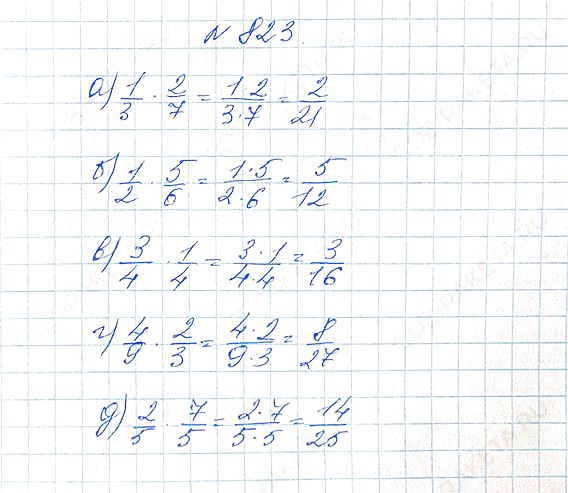 № 823.
а) 1/3 · 2/7 = 1·2/3·7 = 2/21
б) 1/2 · 5/6 = 1·5/2·6 = 5/12
в) 3/4 · 1/4 = 3·1/4·4 = 3/16
г) 4/9 · 2/3 = 4·2/9·3 = 8/27
д) 2/5 · 7/5 = 2·7/5·5 = 14/25